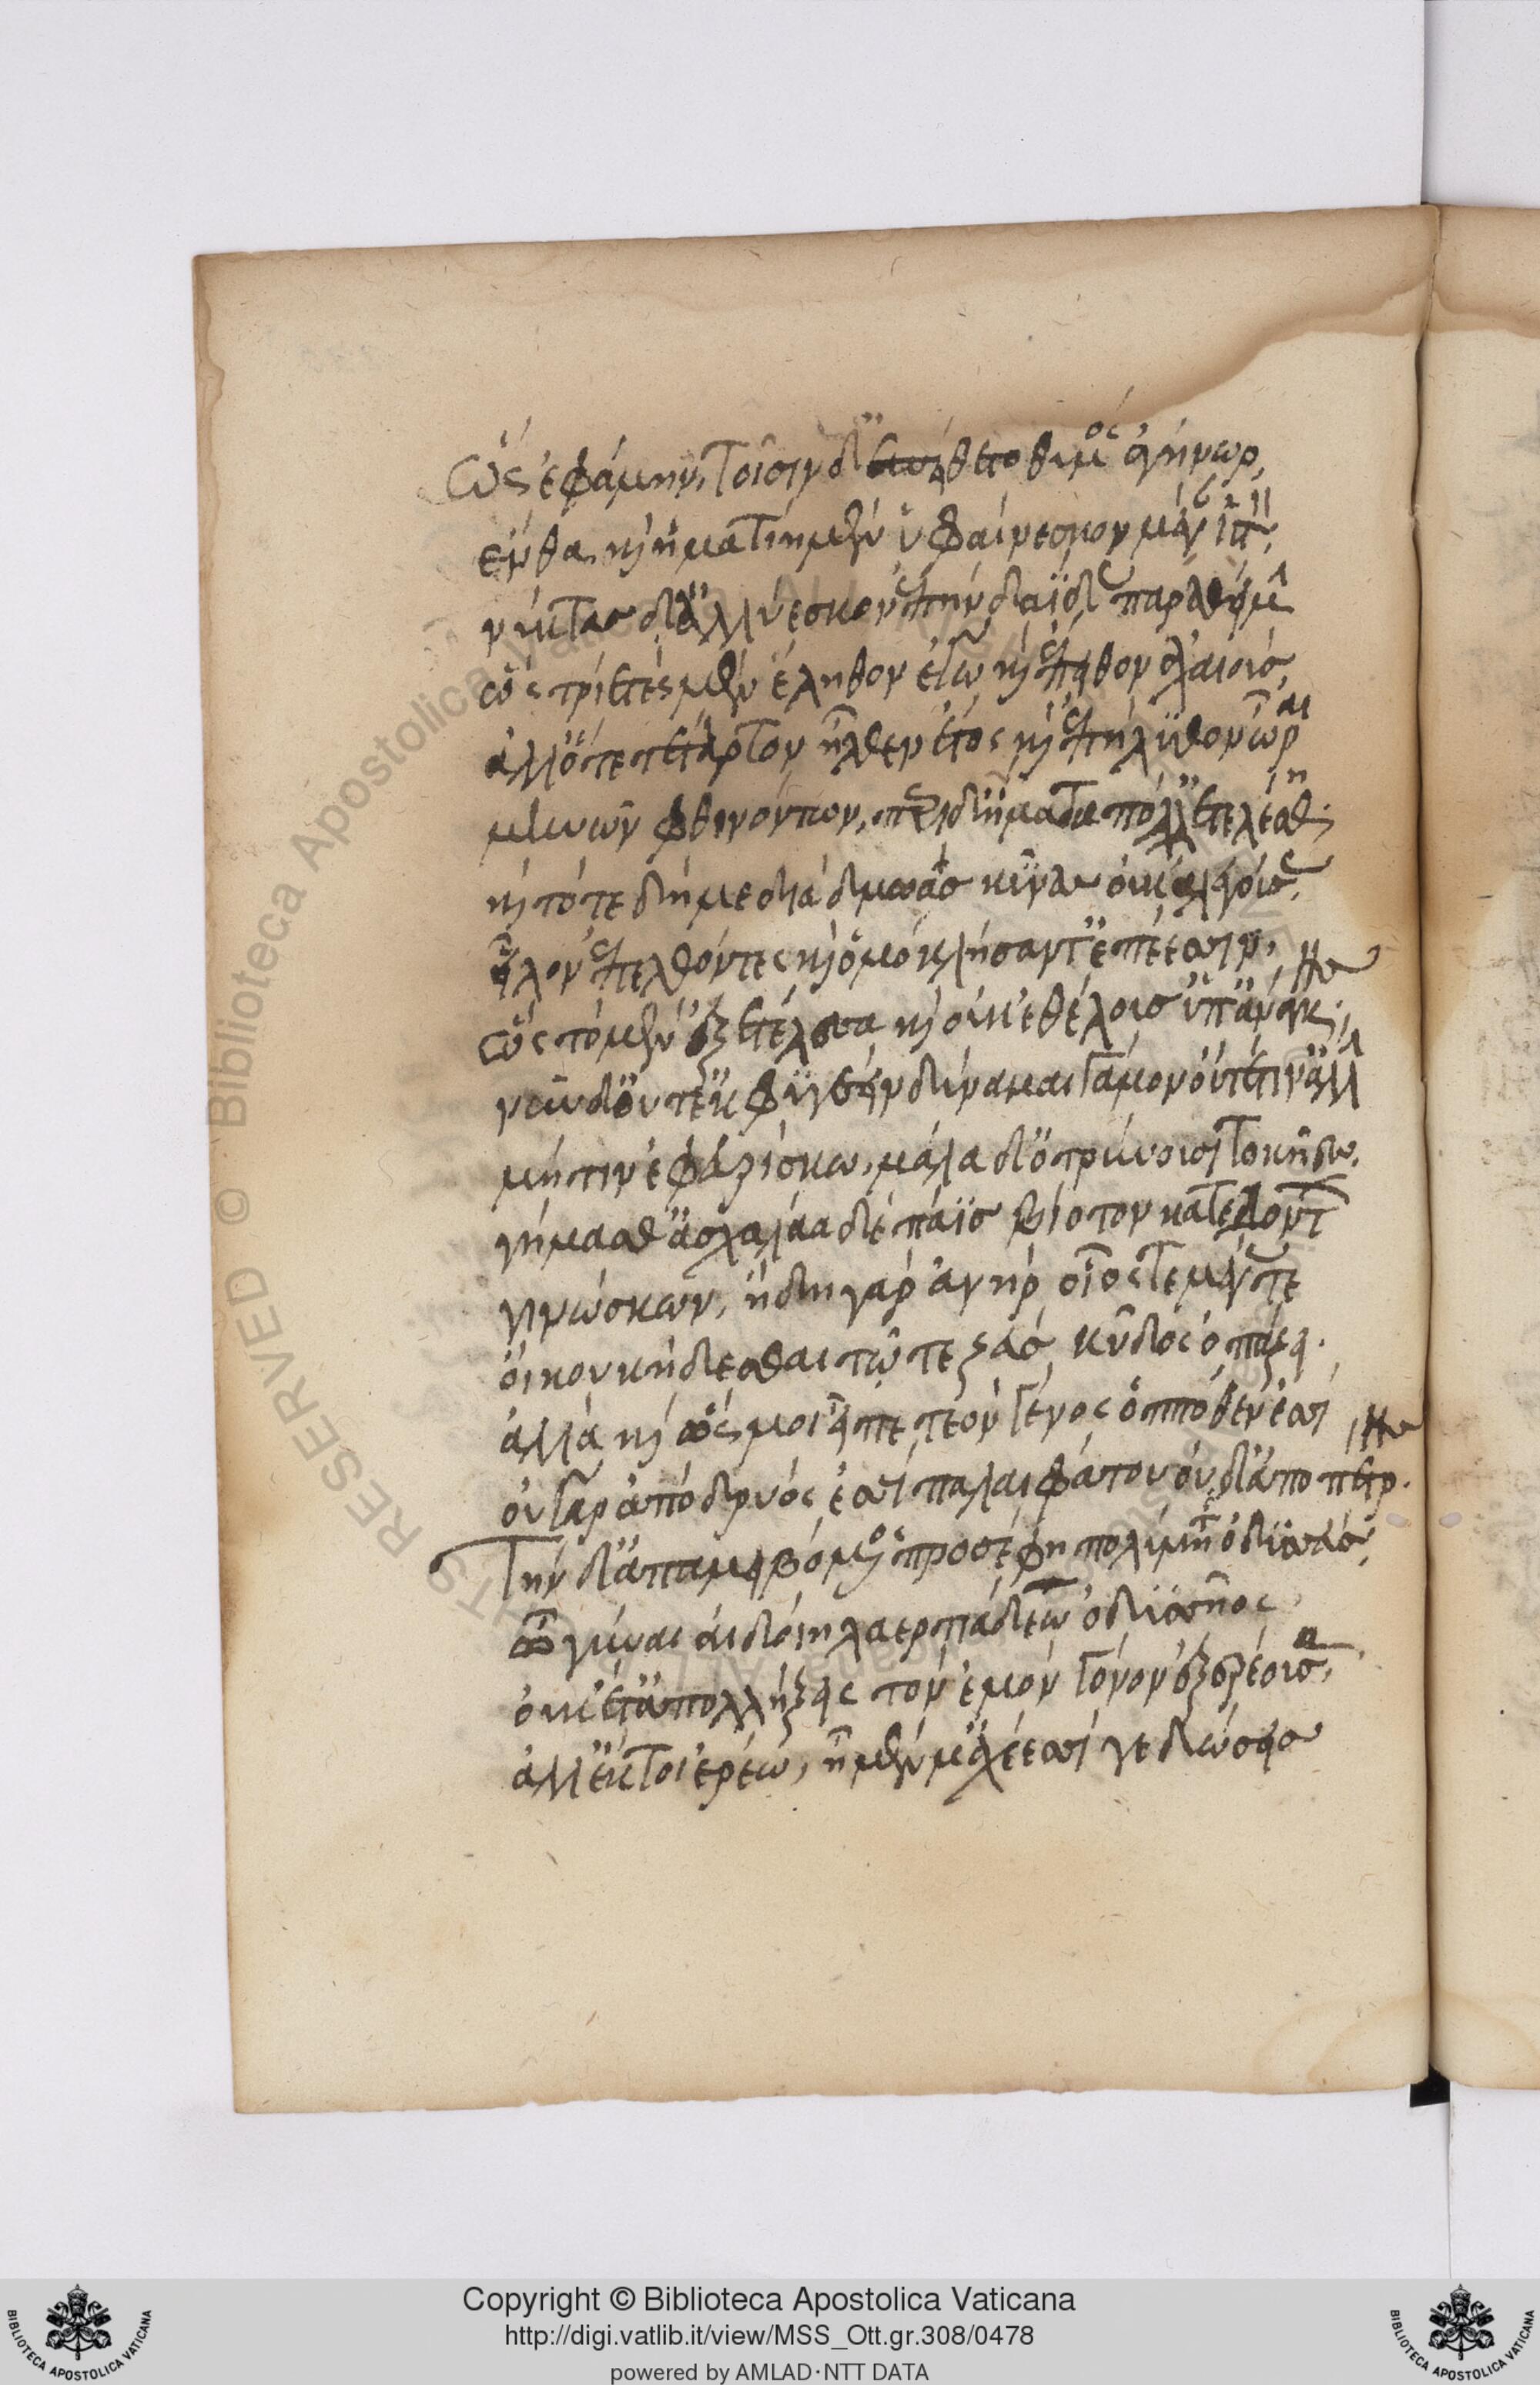 ὣς ἐφάμην, τοῖσιν δ' ἐπεπείθετο θυμὸς ἀγήνωρ,
ἔνθα καὶ ἡματίη μὲν ὑφαίνεσκον μέγαν ἱστὸν,
νύκτας δ' ἀλλύεσκον ἐπὴν δαΐδας παραθείμην
ὣς τρίετες μὲν ἔληθον ἐγὼ καὶ ἔπειθον ἀχαιούς,
ἀλλ' ὅτε τέταρτον ἦλθεν ἔτος καὶ ἐπήλυθον ὧραι
μηνῶν φθινόντων, περὶ δ' ἤματα πόλλ' ἐτελέσθη·
καὶ τότε δή με διὰ δμωάς κύνας οὐκ ἀλεγούσας,
εἷλον ἐπελθόντες καὶ ὁμόκλησαν τ' ἐπέεσσιν,
ὣς τὸ μὲν ἐξετέλεσα καὶ οὐκ ἐθέλουσ' ὑπ' ἀνάγκης,
νῦν δ' οὔτ' ἐκφυγέειν δύναμαι γάμον οὔτέ τιν' ἄλλην
μῆτιν ἐφευρίσκω, μάλα δ' ὀτρύνουσι τοκῆες,
γήμασθ' ἀσχαλάα δὲ πάϊς βίοτον κατεδόντων
γινώσκων, ἤδη γὰρ ἀνὴρ οἷός τε μάλιστα
οἴκου κήδεσθαι τῷ τε ζεὺς κῦδος ὀπάζει.
ἀλλὰ καὶ ὥς μοι εἰπὲ τεὸν γένος ὁππόθεν ἐσσὶ
οὐ γὰρ ἀπὸ δρυός ἐσσὶ παλαιφάτου οὐδ' ἀπὸ πέτρης.
Τὴν δ' ἀπαμειβόμενος προσέφη πολύμητις ὀδυσσεύς,
ὦ γύναι αἰδοίη λαερτιάδεω ὀδυσσῆος
οὐκέτ' ἀπολλήξεις τὸν ἐμὸν γόνον ἐξερέουσα,
ἀλλ' ἔκ τοι ἐρέω, ἦ μὲν μ' ἀχέεσσί γε δώσεις
Copyright © Biblioteca Apostolica Vaticana
http://digi.vatlib.it/view/MSS_Ott.gr.308/0478
powered by AMLAD·NTT DATA